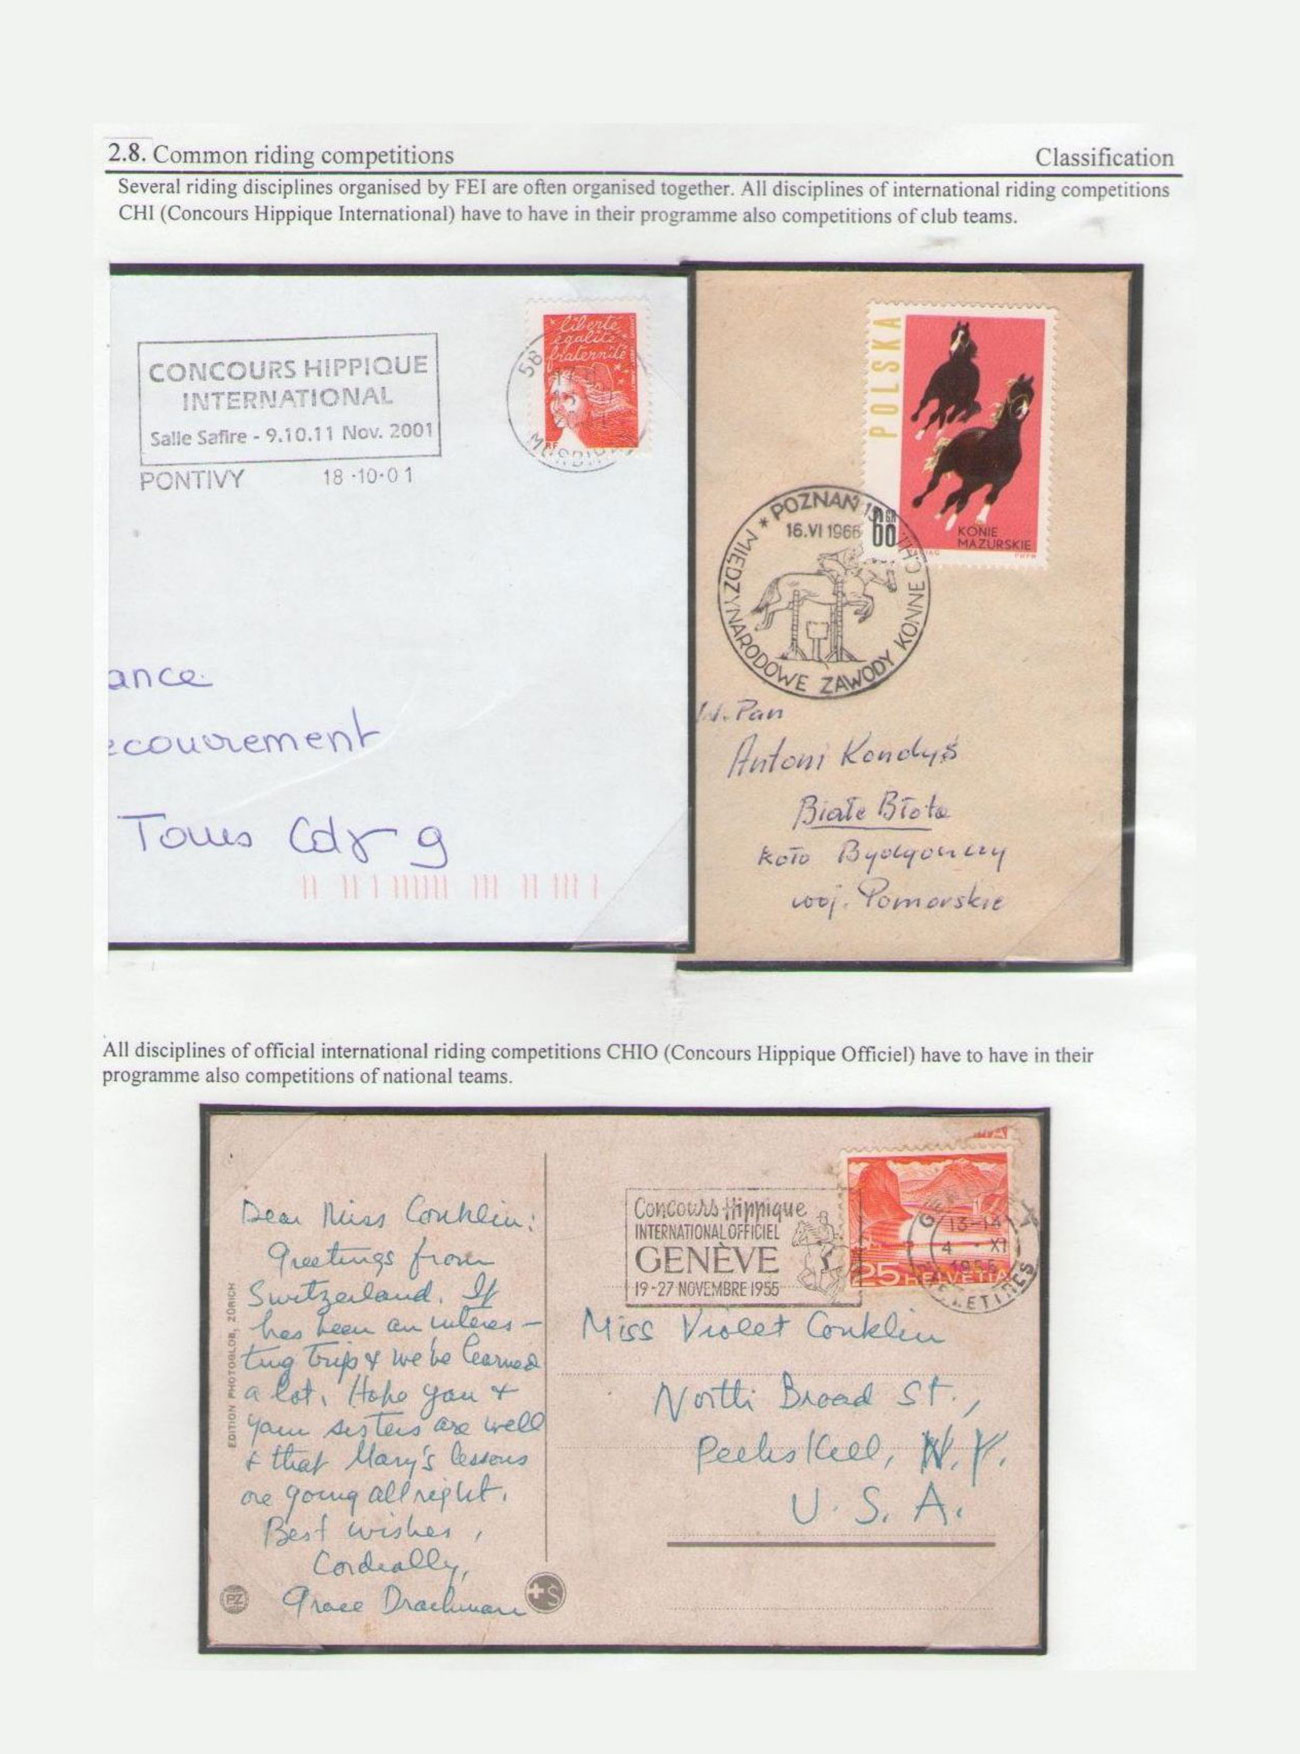 2.8. Common riding competitions Classification
Several riding disciplines organised by FEI are often organised together. All disciplines of international riding competitions
CHI (Concours Hippique International) have to have in their programme also competitions of club teams.
CONCOURS HIPPIQUE
INTERNATIONAL
Salle Safire - 9.10.11 Nov. 2001
PONTIVY 18-10-01
liberté
égalité
fraternité
RF
58
ance
ecouvrement
Tours Cdx 9
POLSKA
60 GR
KONIE
MAZURSKIE
* POZNAŃ
16.VI 1966
MIĘDZYNARODOWE ZAWODY KONNE CHI
W. Pan
Antoni Kondyś
Białe Błota
koło Bydgoszczy
woj. Pomorskie
All disciplines of official international riding competitions CHIO (Concours Hippique Officiel) have to have in their
programme also competitions of national teams.
Dear Miss Conklin:
Greetings from
Switzerland. It
has been an interes-
ting trip & we've learned
a lot. Hope you &
your sisters are well
& that Mary's lessons
are going all right.
Best wishes,
Cordially,
Grace Drachman
EDITION PHOTOGLOB, ZÜRICH
PZ
+S
Concours Hippique
INTERNATIONAL OFFICIEL
GENÈVE
19-27 NOVEMBRE 1955
25 HELVETIA
13-14
4 XI
1955
Miss Violet Conklin
North Broad St.,
Peekskill, N.Y.
U.S.A.